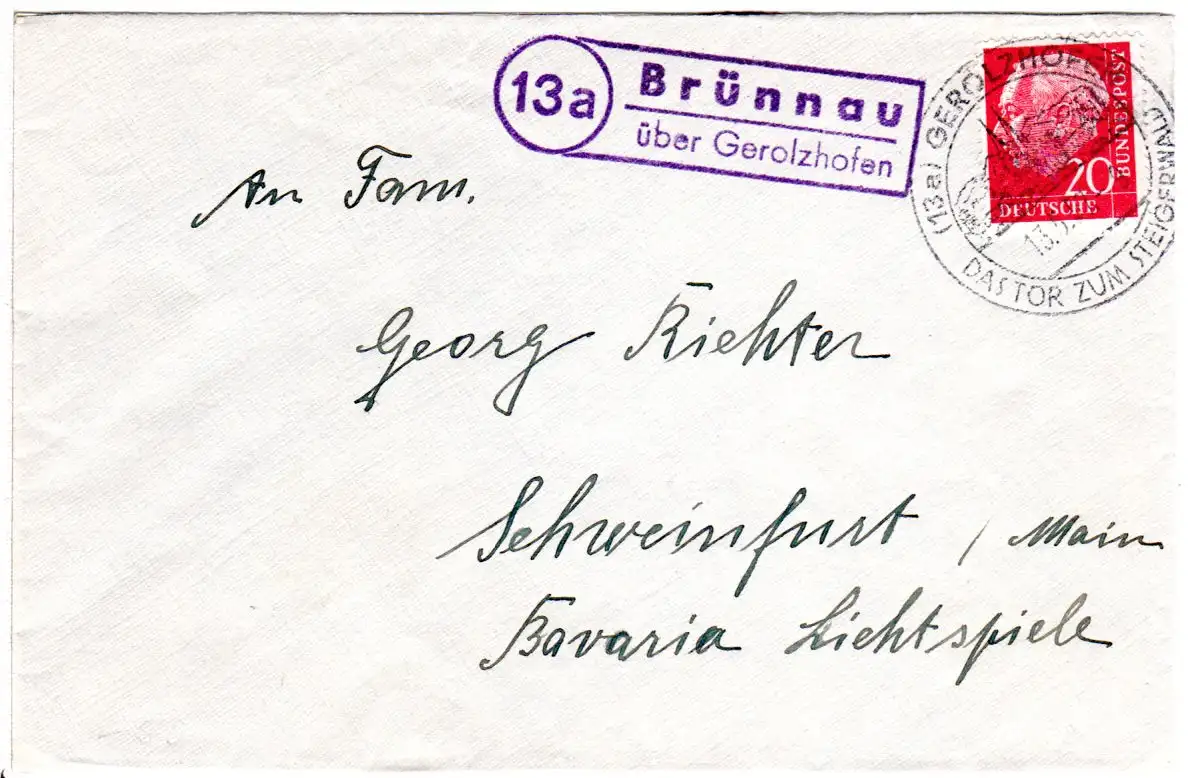 13a
Brünnau
über Gerolzhofen
(13a) GEROLZHOFEN
DAS TOR ZUM STEIGERWALD
20
BUNDESPOST
DEUTSCHE
An Fam.
Georg Richter
Schweinfurt / Main
Bavaria Lichtspiele